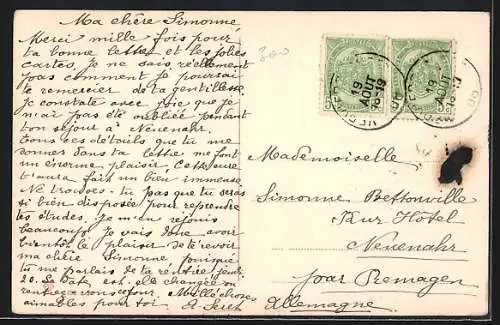 Ma chère Simonne
Merci mille fois pour
ta bonne lettre et les jolies
cartes, je ne sais réellement
pas comment je pourrais
te remercier de ta gentillesse
Je constate avec joie que je
n'ai pas été oubliée pendant
ton séjour à Neuenahr.
Tous ces détails que tu me
donnes dans ta lettre me font
un énorme plaisir. Cette cure
t'aura fait un bien immense
Ne trouves-tu pas que tu seras
si bien disposée pour reprendre
tes études. Je m'en réjouis
beaucoup. Je vais donc avoir
bientôt le plaisir de te revoir
ma chère Simonne
tu me parlais de ta rentrée jeudi
20. La date est-elle changée ou
rentres-vous Mille choses
aimables pour toi.
300
19
AOUT
18-19
19
AOUT
Mademoiselle
Simonne Bettonville
Kur Hôtel
Neuenahr
par Remagen
Allemagne